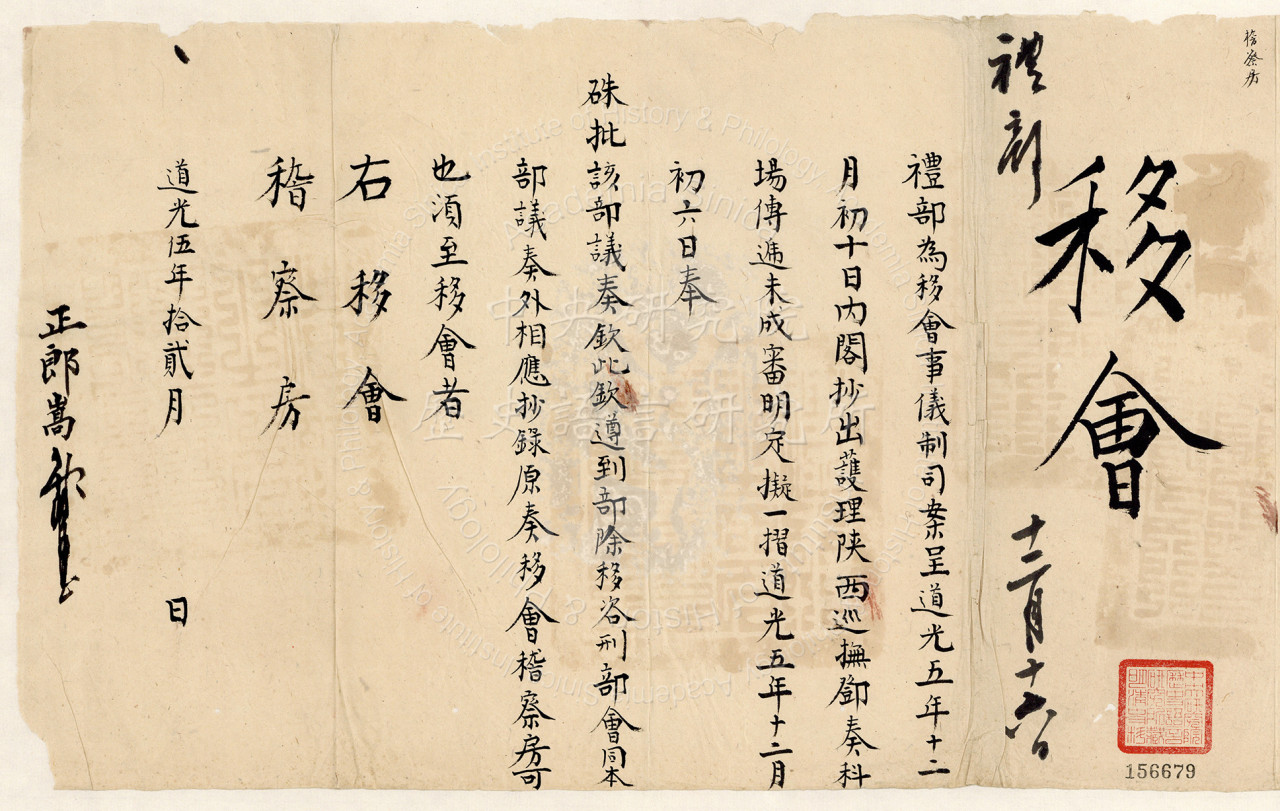 稽察房
禮部
移會
十二月十六日
禮部為移會事儀制司案呈道光五年十二
月初十日內閣抄出護理陝西巡撫鄧奏科
場傳遞未成審明定擬一摺道光五年十二月
初六日奉
硃批該部議奏欽此欽遵到部除移咨刑部會同本
部議奏外相應抄錄原奏移會稽察房可
也須至移會者
右移會
稽察房
道光伍年拾貳月 日
正郎嵩
156679
中央研究院
歷史語言研究所
Institute of History & Philology, Academia Sinica